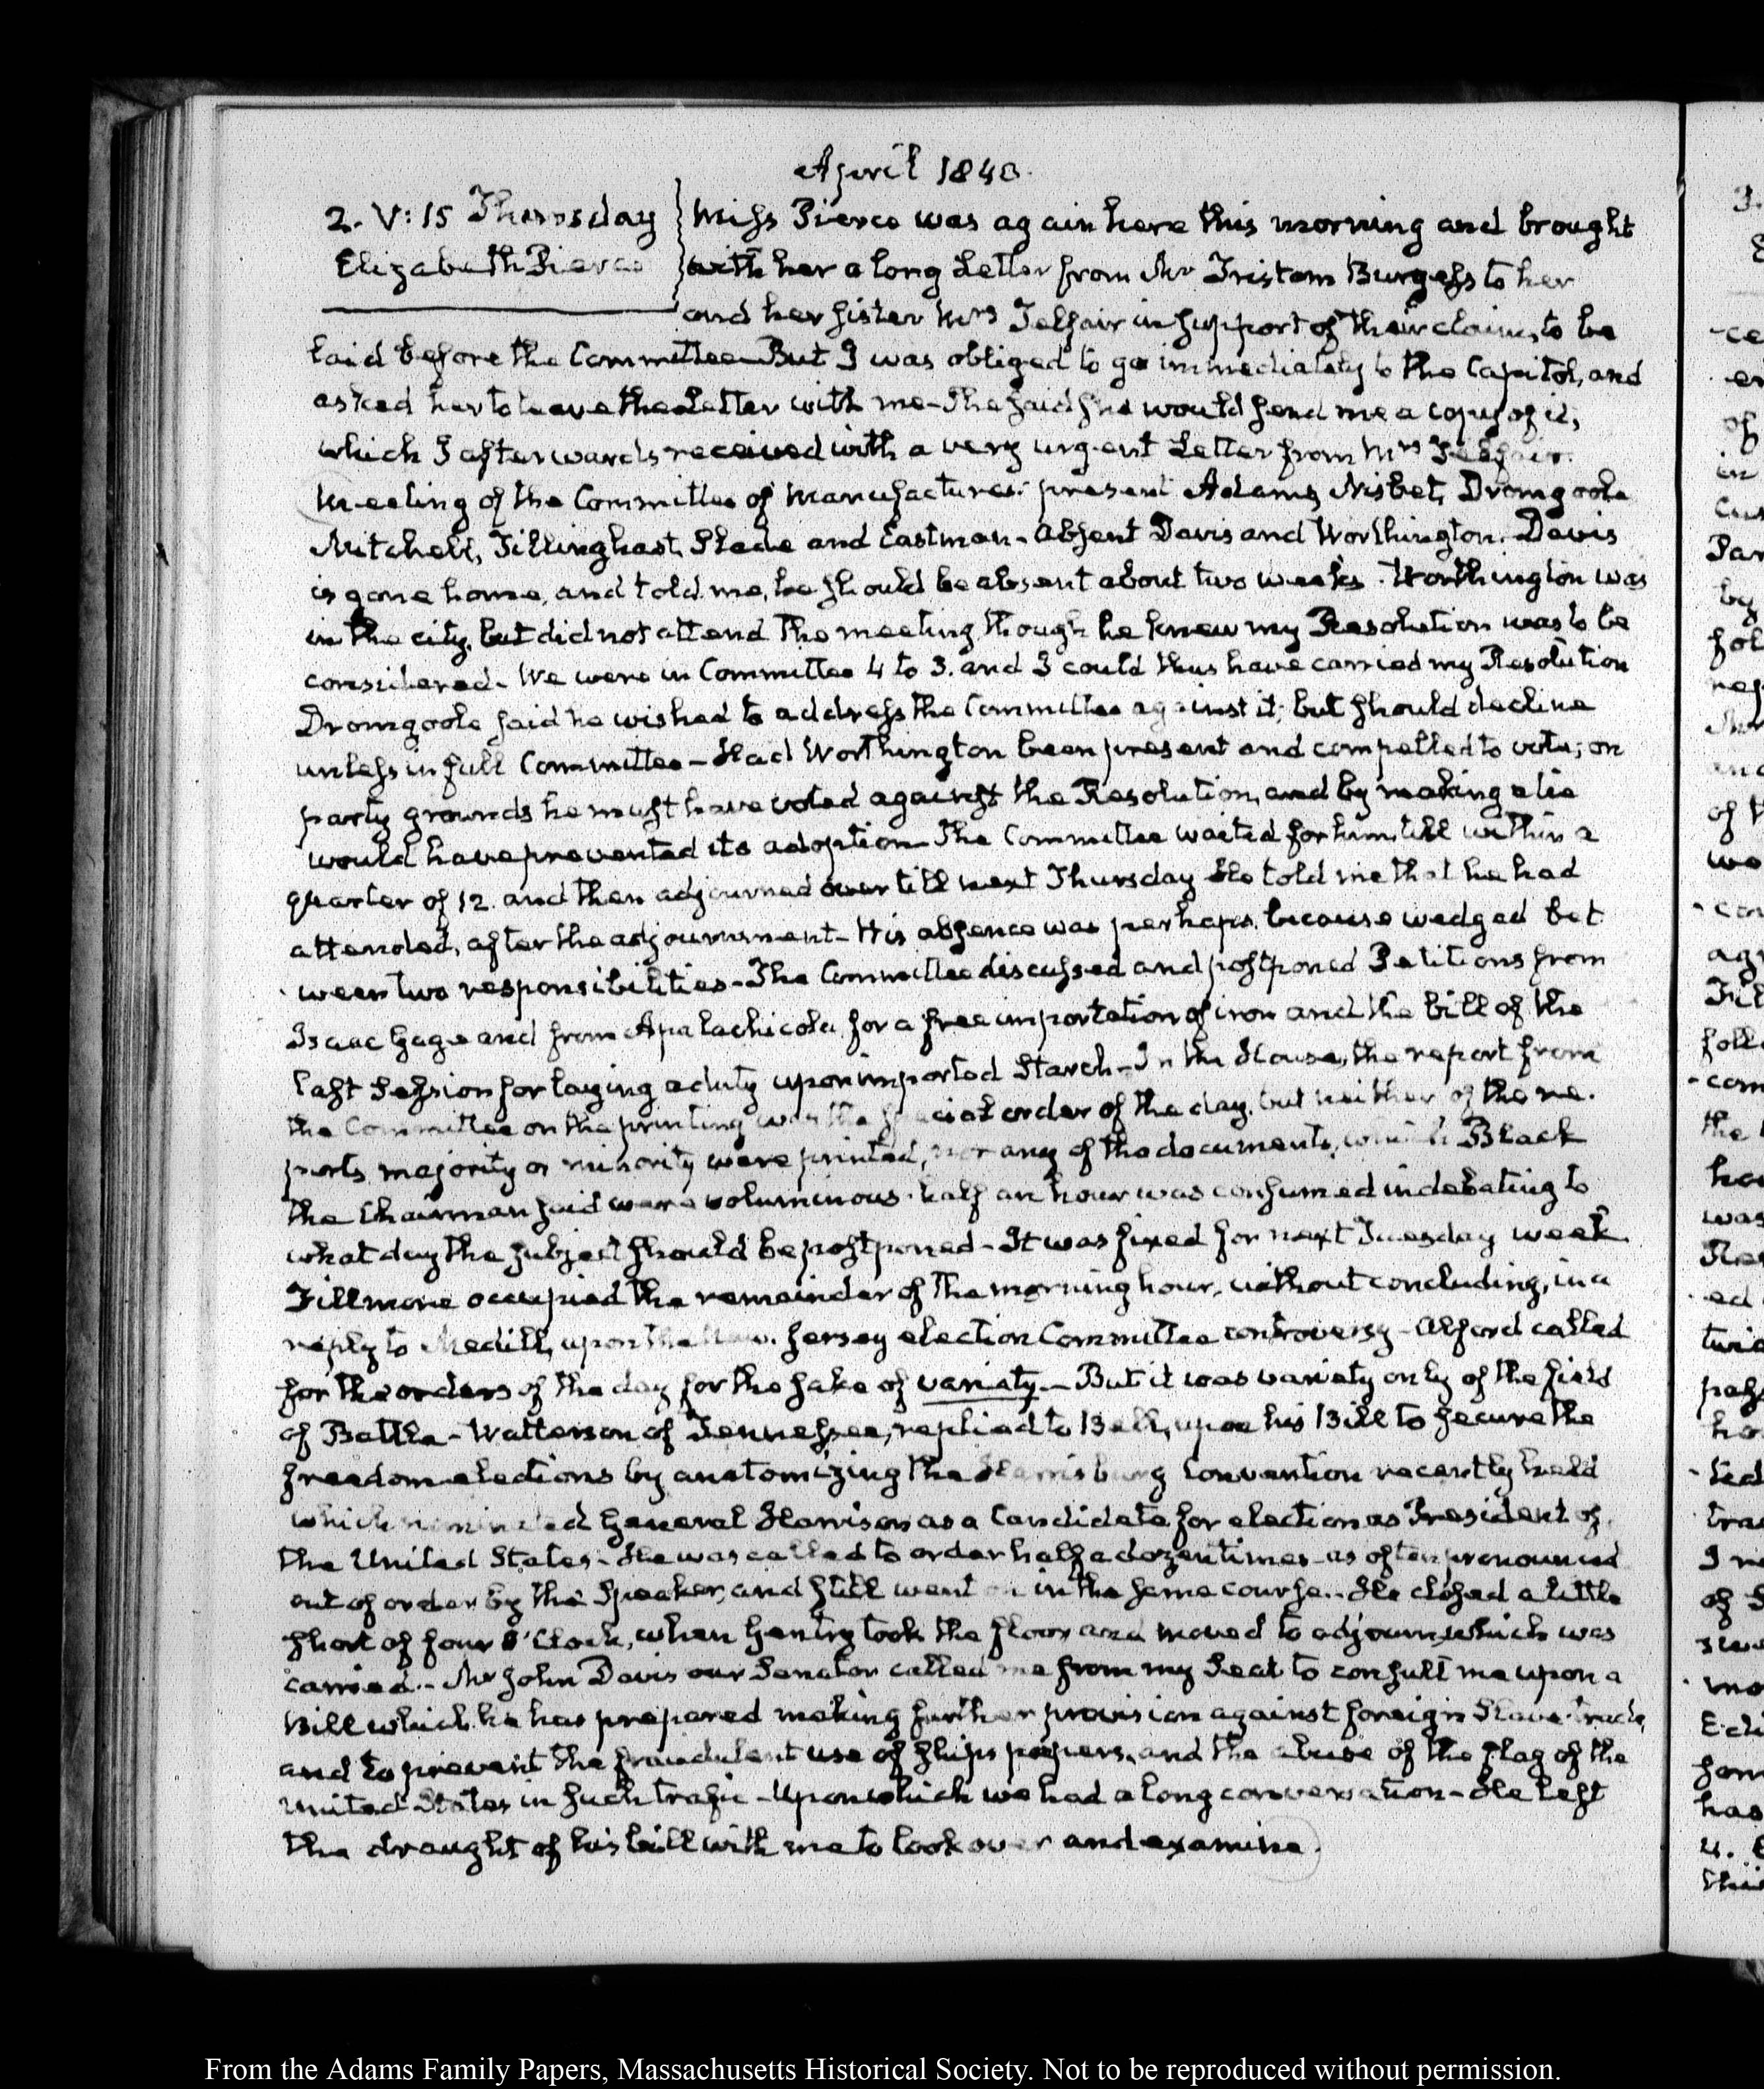 April 1840.
2. V:15 Thursday
Elizabeth Pierce
Miss Pierce was again here this morning and brought
with her a long Letter from Mr Tristam Burgess to her
and her sister Mrs Telfair in support of their claims, to be
laid before the Committee But I was obliged to go immediately to the Capitol, and
asked her to leave the Letter with me- She said she would send me a copy of it,
which I afterwards received with a very urgent Letter from Mrs Telfair.
Meeting of the Committee of Manufactures: present Adams, Nisbet, Dromgoole
Mitchell, Tillinghast, Slade and Eastman- Absent Davis and Worthington. Davis
is gone home, and told me, he should be absent about two weeks. Worthington was
in the city, but did not attend the meeting though he knew my Resolution was to be
considered- We were in Committee 4 to 3. and I could thus have carried my Resolution
Dromgoole said he wished to address the Committee against it; but should decline
unless in full Committee- Had Worthington been present and compelled to vote; on
party grounds he must have voted against the Resolution, and by making a tie
would have prevented its adoption- The Committee waited for him, till within a
quarter of 12. and then adjourned over till next Thursday He told me that he had
attended, after the adjournment- His absence was perhaps, because wedged bet
-ween two responsibilities- The Committee discussed and postponed Petitions from
Isaac Gage and from Apalachicola for a free importation of iron and the bill of the
last Session for laying a duty upon imported Starch- In the House, the report from
the Committee on the printing was the special order of the day, but neither of the re-
ports majority or minority were printed, nor any of the documents, which Black
the Chairman said were voluminous. half an hour was consumed in debating to
what day the subject should be postponed- It was fixed for next Tuesday week.
Fillmore occupied the remainder of the morning hour, without concluding, in a
reply to Medill, upon the New Jersey election Committee controversy- Alford called
for the orders of the day for the sake of variety- But it was variety only of the field
of Battle- Watterson of Tennessee, replied to Bell, upon his Bill to secure the
freedom elections by anatomizing the Harrisburg Convention recently held
which nominated General Harrison as a Candidate for election as President of
the United States- He was called to order half a dozen times- as often pronounced
out of order by the Speaker, and still went on in the same course.. He closed a little
short of four O'Clock, when Gentry took the floor and moved to adjourn, which was
carried.- Mr John Davis our Senator called me from my Seat to consult me upon a
Bill which he has prepared making further provision against foreign Slave-trade,
and to prevent the fraudulent use of ships papers, and the abuse of the flag of the
United States in such trafic- Upon which we had a long conversation- He left
the draught of his bill with me to look over and examine.
From the Adams Family Papers, Massachusetts Historical Society. Not to be reproduced without permission.